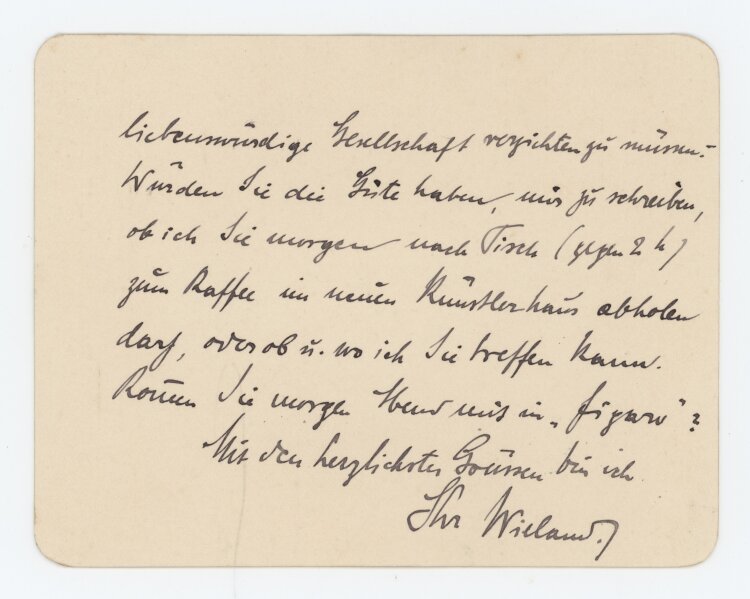 liebenswürdige Gesellschaft verzichten zu müssen.
Würden Sie die Güte haben, mir zu schreiben,
ob ich Sie morgen nach Tisch (gegen 2 h)
zum Kaffee im neuen Künstlerhaus abholen
darf, oder ob u. wo ich Sie treffen kann.
Kom̅en Sie morgen Abend mit in „Figaro"?
Mit den herzlichsten Grüssen bin ich
Ihr Wieland.